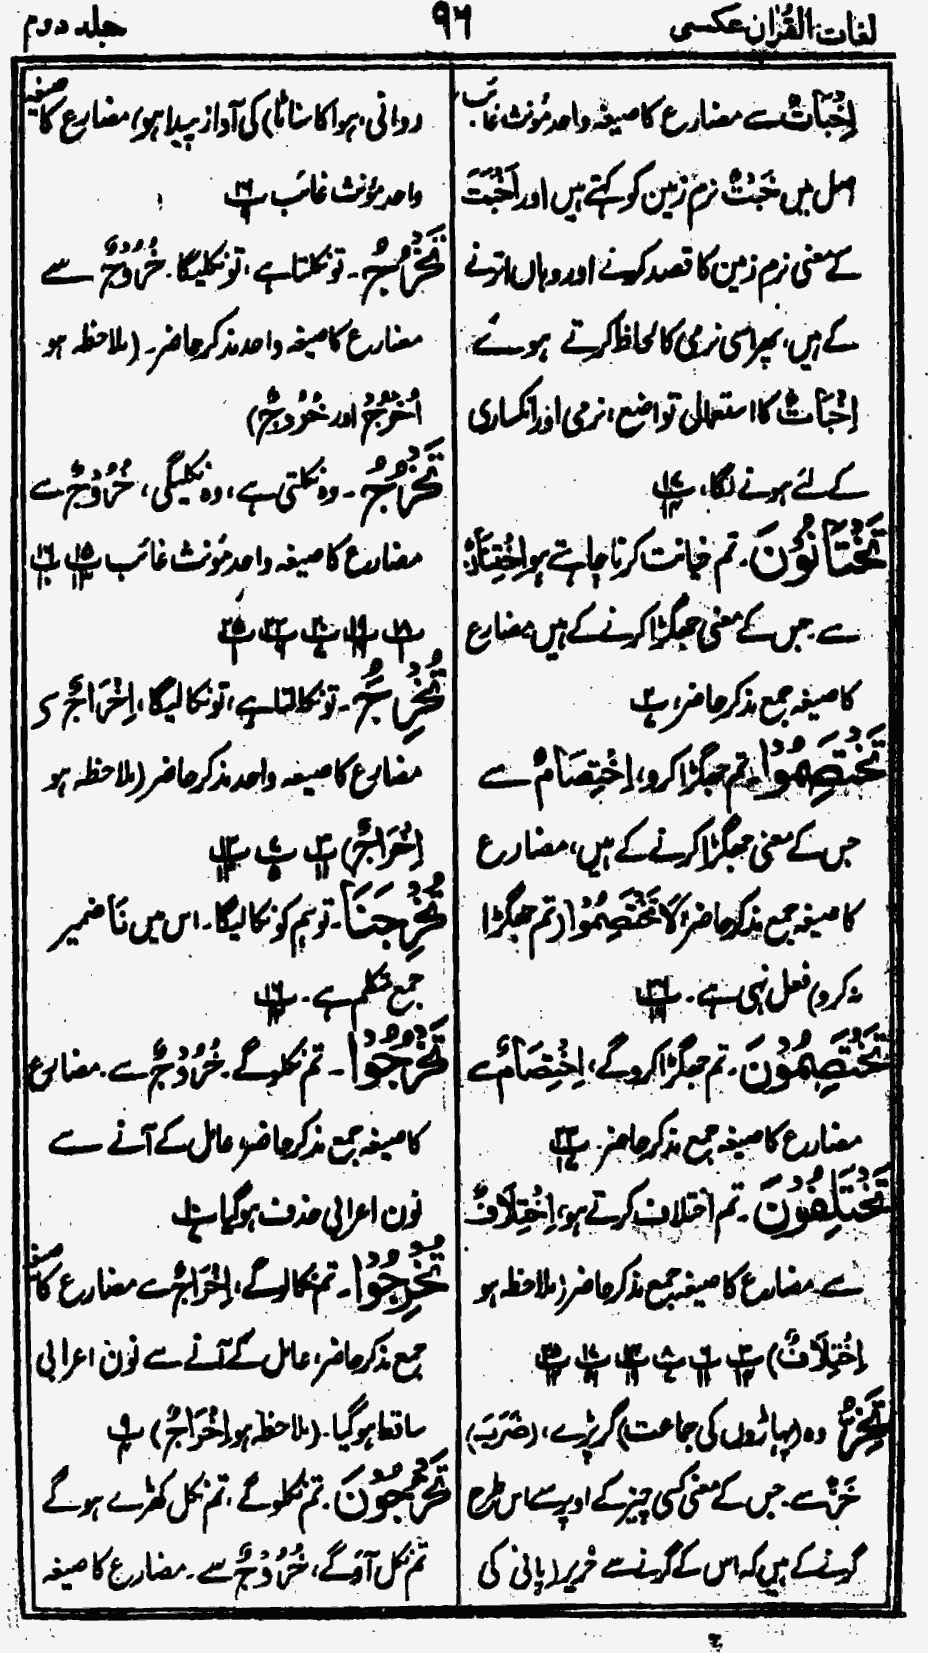 لغات القرآن عکسی
۹۶
جلد دوم
اِخْبَاتٌ سے مضارع کا صیغہ واحد مؤنث غائب
اصل میں خَبْتٌ نرم زمین کو کہتے ہیں اور اَخْبَتَ
کے معنی نرم زمین کا قصد کرنے اور وہاں اترنے
کے ہیں، پھر اسی نرمی کا لحاظ کرتے ہوئے
اِخْبَاتٌ کا استعمال تواضع، نرمی اور انکساری
کے لئے ہونے لگا،
تَخْتَانُوْنَ۔ تم خیانت کرنا چاہتے ہو اِخْتِنَانٌ
سے۔ جس کے معنی جھگڑا کرنے کے ہیں مضارع
کا صیغہ جمع مذکر حاضر،
تَخْتَصِمُوْا۔ تم جھگڑا کرو، اِخْتِصَامٌ سے
جس کے معنی جھگڑا کرنے کے ہیں، مضارع
کا صیغہ جمع مذکر حاضر، لَا تَخْتَصِمُوْا (تم جھگڑا
نہ کرو) فعل نہی ہے۔
تَخْتَصِمُوْنَ۔ تم جھگڑا کرو گے، اِخْتِصَامٌ سے
مضارع کا صیغہ جمع مذکر حاضر۔
تَخْتَلِفُوْنَ۔ تم اختلاف کرتے ہو، اِخْتِلَافٌ
سے۔ مضارع کا صیغہ جمع مذکر حاضر (ملاحظہ ہو
اِخْتِلَافٌ)
تَخِرُّ۔ وہ (پہاڑوں کی جماعت) گر پڑے، (ضَرَبَ)
خَرٌّ سے۔ جس کے معنی کسی چیز کے اوپر سے اس طرح
گرنے کے ہیں کہ اس کے گرنے سے خریر (پانی کی
روانی، ہوا کا سناٹا) کی آواز پیدا ہو، مضارع کا صیغہ
واحد مؤنث غائب
تَخْرُجُ۔ تو نکلتا ہے، تو نکلیگا۔ خُرُوْجٌ سے
مضارع کا صیغہ واحد مذکر حاضر۔ (ملاحظہ ہو
اُخْرُجُ اور خُرُوْجٌ)
تَخْرُجُ۔ وہ نکلتی ہے، وہ نکلیگی، خُرُوْجٌ سے
مضارع کا صیغہ واحد مؤنث غائب
تُخْرِجُ۔ تو نکالتا ہے، تو نکالیگا، اِخْرَاجٌ سے
مضارع کا صیغہ واحد مذکر حاضر (ملاحظہ ہو
اِخْرَاجٌ)
تُخْرِجَنَا۔ تو ہم کو نکالیگا۔ اس میں نَا ضمیر
جمع متکلم ہے۔
تَخْرُجُوْا۔ تم نکلو گے۔ خُرُوْجٌ سے۔ مضارع
کا صیغہ جمع مذکر حاضر، عامل کے آنے سے
نون اعرابی حذف ہو گیا
تُخْرِجُوْا۔ تم نکالو گے، اِخْرَاجٌ سے مضارع کا صیغہ
جمع مذکر حاضر، عامل کے آنے سے نون اعرابی
ساقط ہو گیا۔ (ملاحظہ ہو اِخْرَاجٌ)
تَخْرُجُوْنَ۔ تم نکلو گے، تم نکل کھڑے ہو گے
تم نکل آؤ گے، خُرُوْجٌ سے۔ مضارع کا صیغہ